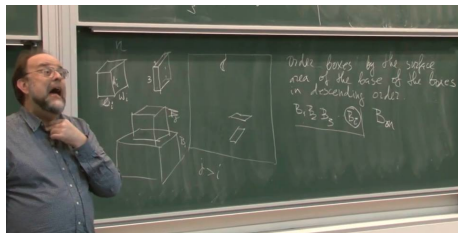 n
order boxes by the surface
area of the base of the boxes
in descending order
B₁ B₂ B₃
3
j > i